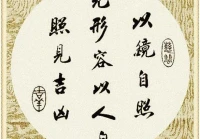 以鏡自照
見形容以人自
照見吉凶